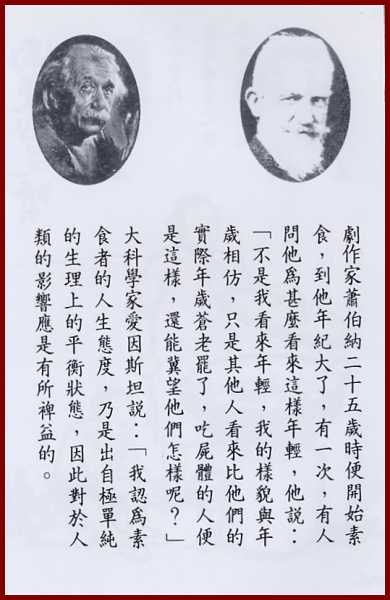 劇作家蕭伯納二十五歲時便開始素
食，到他年紀大了，有一次，有人
問他爲甚麼看來這樣年輕，他説：
「不是我看來年輕，我的樣貌與年
歲相仿，只是其他人看來比他們的
實際年歲蒼老罷了，吃屍體的人便
是這樣，還能冀望他們怎樣呢？」
大科學家愛因斯坦説：「我認爲素
食者的人生態度，乃是出自極單純
的生理上的平衡狀態，因此對於人
類的影響應是有所裨益的。